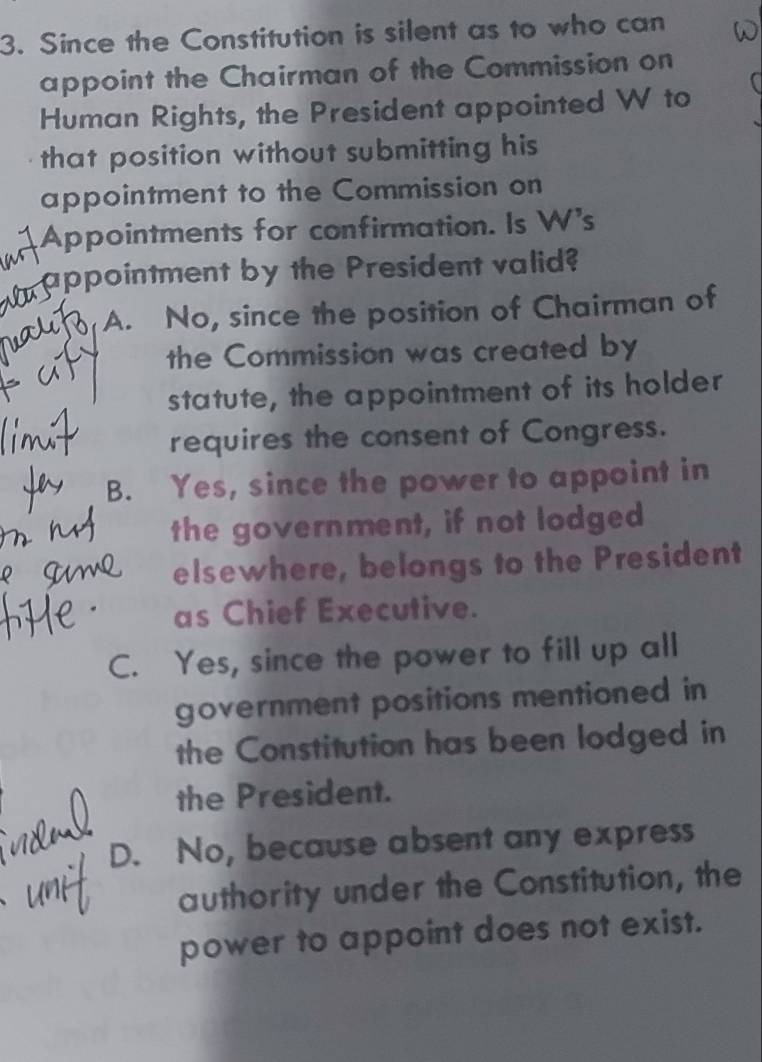 3. Since the Constitution is silent as to who can
appoint the Chairman of the Commission on
Human Rights, the President appointed W to
that position without submitting his
appointment to the Commission on
Appointments for confirmation. Is W's
appointment by the President valid?
A. No, since the position of Chairman of
the Commission was created by
statute, the appointment of its holder
requires the consent of Congress.
limit
B. Yes, since the power to appoint in
the government, if not lodged
not
elsewhere, belongs to the President
same
as Chief Executive.
title.
C. Yes, since the power to fill up all
government positions mentioned in
the Constitution has been lodged in
the President.
D. No, because absent any express
unit
authority under the Constitution, the
power to appoint does not exist.